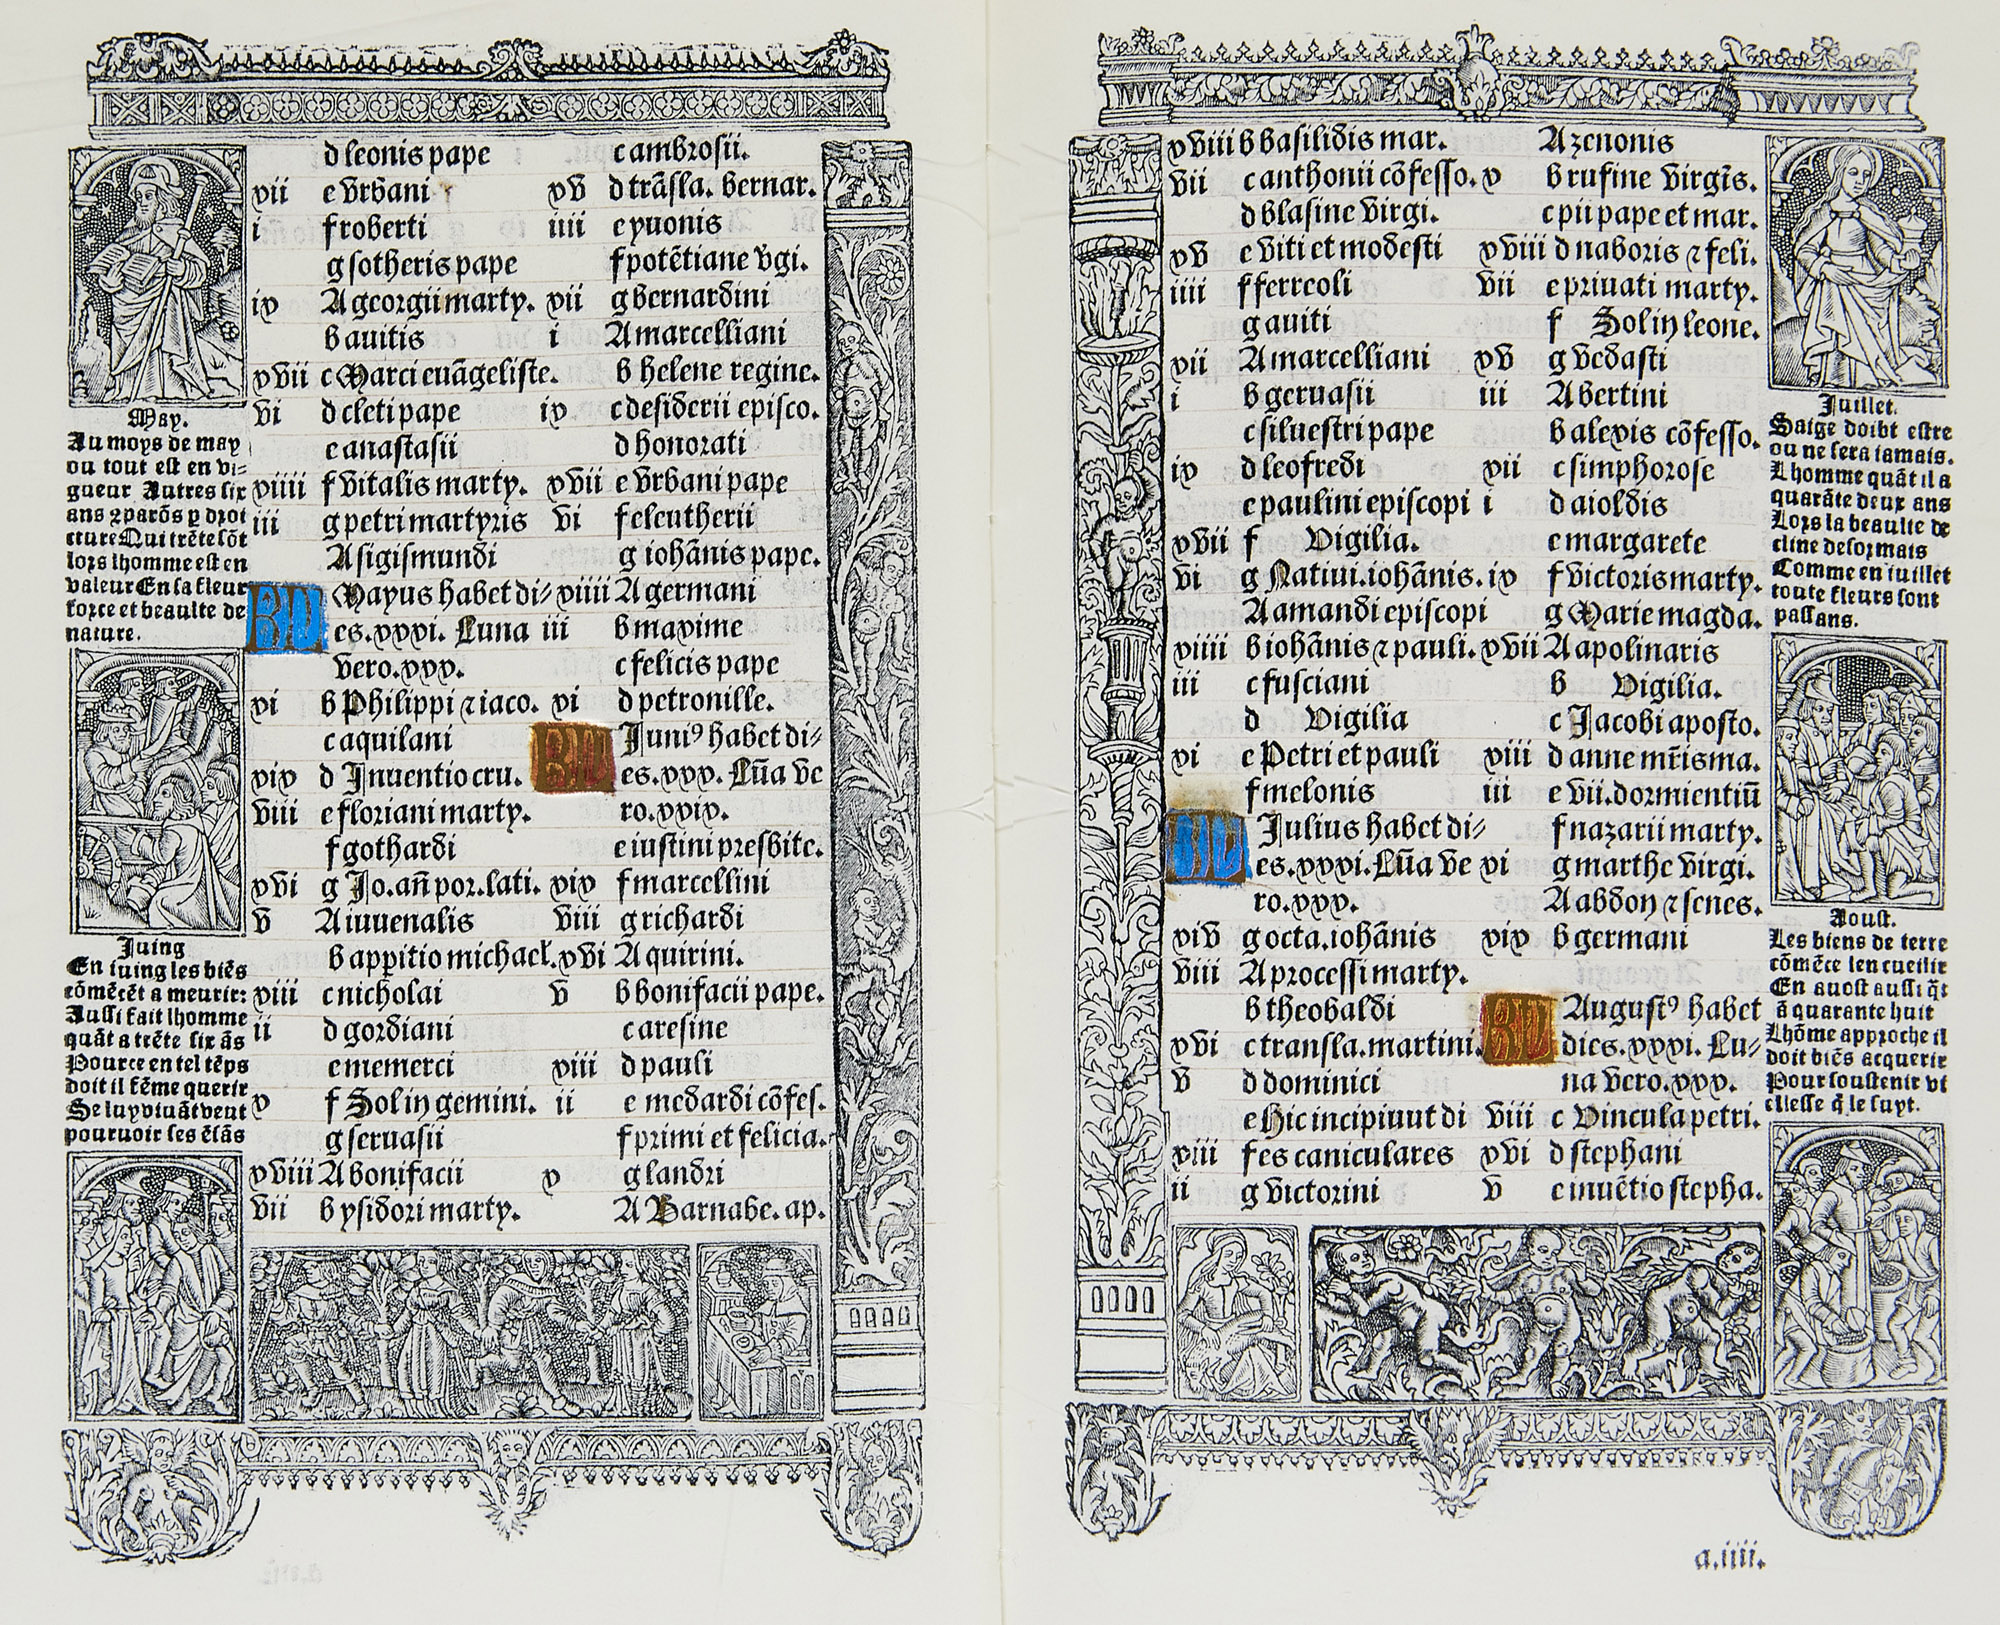 d leonis pape
vii e vrbani
i f roberti
g sotheris pape
ix A georgii marty.
b auitis
xvii c Marci euāgeliste.
vi d cleti pape
e anastasii
xiiii f vitalis marty.
iii g petri martyris
A sigismundi
KL Mayus habet di-
es.xxxi. Luna
vero.xxx.
xi b Philippi ⁊ iaco.
c aquilani
xix d Inuentio cru.
viii e floriani marty.
f gothardi
xvi g Jo.añ por.lati.
v A iuuenalis
b apparitio michael.
xiii c nicholai
ii d gordiani
e memerci
x f Sol in gemini.
g seruasii
xviii A bonifacii
vii b ysidori marty.
c ambrosii.
xv d trāsla. bernar.
iiii e yuonis
f potētiane vgi.
vii g bernardini
i A marcelliani
b helene regine.
ix c desiderii episco.
d honorati
xvii e vrbani pape
vi f eleutherii
g iohānis pape.
xiiii A germani
iii b maxime
c felicis pape
xi d petronille.
KL Juniꝰ habet di-
es.xxx. Lūa ve
ro.xxix.
e iustini presbite.
xix f marcellini
viii g richardi
xvi A quirini.
v b bonifacii pape.
c aresine
xiii d pauli
ii e medardi cōfes.
f primi et felicia.
x g landri
A Barnabe. ap.
May.
Au moys de may
ou tout est en vi-
gueur Autres six
ans ꝯparōs ꝑ droi
cture Qui trēte sōt
lors lhomme est en
valeur En sa fleur
force et beaulte de
nature.
Juing
En iuing les biēs
cōmēcēt a meurir:
Aussi fait lhomme
quāt a trēte six ās
Pource en tel tēps
doit il fēme querir
Se luy viuāt veut
pouruoir ses ēfās
xviii b basilidis mar.
vii c anthonii cōfesso.
d blasine virgi.
xv e viti et modesti
iiii f ferreoli
g auiti
xii A marcelliani
i b geruasii
c siluestri pape
ix d leofredi
e paulini episcopi
xvii f Vigilia.
vi g Natiui.iohānis.
A amandi episcopi
xiiii b iohānis ⁊ pauli.
iii c fusciani
d Vigilia
xi e Petri et pauli
f melonis
KL Julius habet di-
es.xxxi.Lūa ve
ro.xxx.
xix g octa.iohānis
viii A processi marty.
b theobaldi
xvi c transla.martini.
v d dominici
e Hic incipiuut di
xiii f es caniculares
ii g victorini
A zenonis
x b rufine virgis.
c pii pape et mar.
xviii d naboris ⁊ feli.
vii e priuati marty.
f Sol in leone.
xv g vedasti
iiii A bertini
b alexis cōfesso.
xii c simphorose
i d aioldis
e margarete
ix f victoris marty.
g Marie magda.
xvii A apolinaris
b Vigilia.
c Jacobi aposto.
xiiii d anne mr̄is ma.
iii e vii.dormientiū
f nazarii marty.
xi g marthe virgi.
A abdon ⁊ senes.
xix b germani
KL Augustꝰ habet
dies.xxxi. Lu-
na vero.xxx.
viii c Vincula petri.
xvi d stephani
v e inuētio stepha.
Juillet.
Saige doibt estre
ou ne sera iamais.
Lhomme quāt il a
quarāte deux ans
Lors la beaulte de
cline desormais
Comme en iuillet
toute fleurs sont
passans.
Aoust.
Les biens de terre
cōmēce len cueilir
En aoust aussi q̄t
ā quarante huit
Lhōme approche il
doit biēs acquerir
Pour soustenir vi
ellesse q̄ le suyt.
a.iiii.